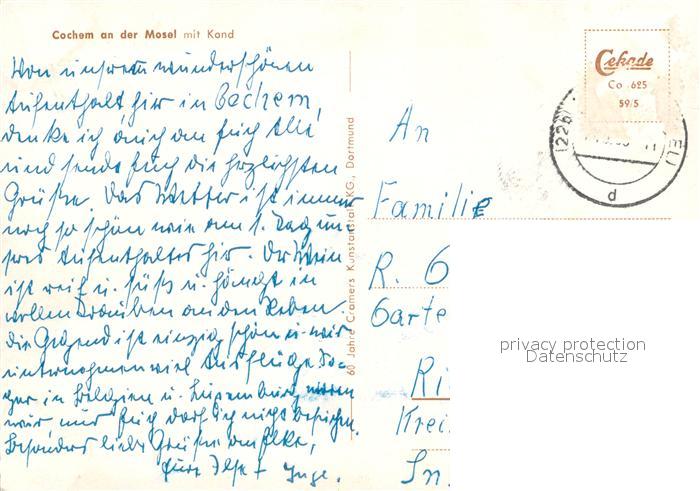 Cochem an der Mosel mit Kond
Von unserem wunderschönen
Aufenthalt hier in Cochem,
denke ich auch an Euch Alle
und sende Euch die herzlichsten
Grüße. Das Wetter ist immer
noch so schön wie am 1. Tag un-
seres Aufenthaltes hier. Der Wein
ist reif u. süß u. hängt in
vollen Trauben an den Reben.
Die Gegend ist einzig schön u. wir
unternehmen viel Ausflüge. So-
gar in Belgien u. Luxemburg waren
wir nur Euch darf ich nicht besuchen.
Besonders liebe Grüße an Elke,
Eure Ilse + Inge.
60 Jahre Cramers Kunstanstalt KG., Dortmund
Cekade
Co 625
59/5
(226
d
An
Familie
R. G
Garte
Ri
Krei
In
privacy protection
Datenschutz